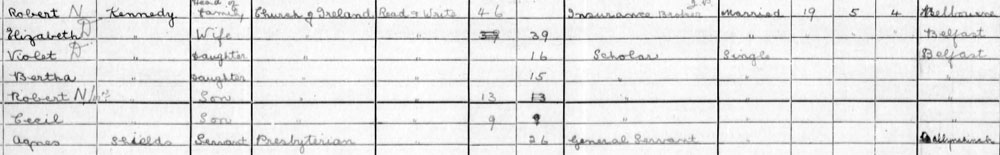 Robert N Kennedy Head of Family Church of Ireland Read & Write 46 Insurance Broker Married 19 5 4 Melbourne
Elizabeth D " Wife " " 39 " " Belfast
Violet D " Daughter " " 16 Scholar Single Belfast
Bertha " Daughter " " 15 " " "
Robert N " Son " " 13 13 " " "
Cecil " Son " " 9 9 " " "
Agnes Shields Servant Presbyterian " 26 General Servant "